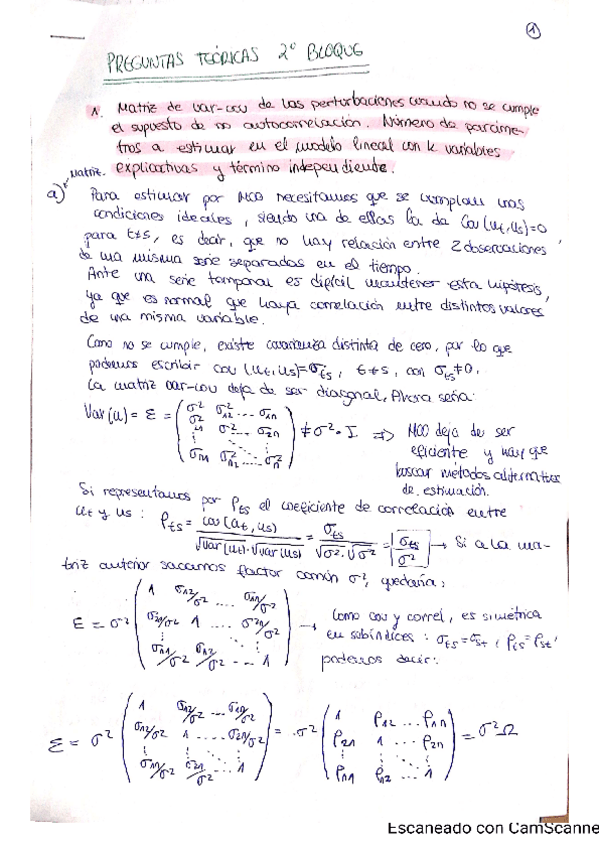 1
PREGUNTAS TEÓRICAS 2º BLOQUE
1. Matriz de var-cov de las perturbaciones cuando no se cumple
el supuesto de no autocorrelación. Número de paráme-
tros a estimar en el modelo lineal con k variables
explicativas y término independiente.
Matriz.
a) Para estimar por MCO necesitamos que se cumplan unas
condiciones ideales, siendo una de ellas la de Cov(ut,us)=0
para t≠s, es decir, que no hay relación entre 2 observaciones
de una misma serie separadas en el tiempo.
Ante una serie temporal es difícil mantener esta hipótesis,
ya que es normal que haya correlación entre distintos valores
de una misma variable.
Como no se cumple, existe covarianza distinta de cero, por lo que
podemos escribir cov(ut,us)=σts, t≠s, con σts≠0.
La matriz var-cov deja de ser diagonal, Ahora será:
Var(u) = Σ = ( σ² σ²12 ... σ1n
σ² ... σ2n
σn1 ... σ² ) ≠ σ²·I ⇒ MCO deja de ser
eficiente y hay que
buscar métodos alternativos
de estimación.
Si representamos por ρts el coeficiente de correlación entre
ut y us: ρts = cov(ut,us) / √var(ut)·√var(us) = σts / √σ²·√σ² = σts/σ² → Si a la ma-
triz anterior sacamos factor común σ², quedaría:
Σ = σ² ( 1 σ12/σ² .... σ1n/σ²
1 .... σ2n/σ²
σn1/σ² ... 1 ) → Como cov y correl, es simétrica
en subíndices: σts=σst, ρts=ρst,
podemos decir:
Σ = σ² ( 1 σ12/σ² ... σ1n/σ²
σ12/σ² 1 .... σ2n/σ²
σ1n/σ² σ2n/σ² ... 1 ) = σ² ( 1 ρ12 ... ρ1n
1 ... ρ2n
... 1 ) = σ²Ω
Escaneado con CamScanne